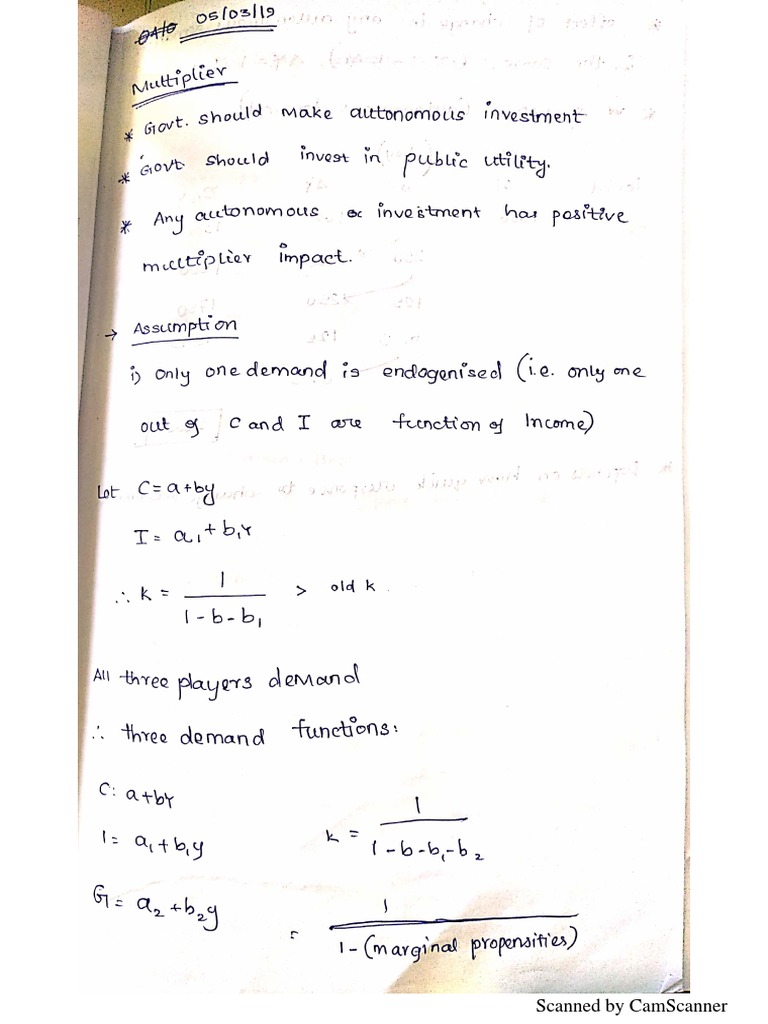 DATE 05/03/19
Multiplier
* Govt. should make autonomous investment
* Govt should invest in public utility.
* Any autonomous investment has positive
multiplier impact.
→ Assumption
i) only one demand is endogenised (i.e. only one
out of C and I are function of Income)
Let C = a+by
I = a₁+b₁Y
∴ k = 1 / (1-b-b₁) > old k.
All three players demand
∴ three demand functions:
C: a+bY
I = a₁+b₁y k = 1 / (1-b-b₁-b₂)
G = a₂+b₂y = 1 / (1-(marginal propensities))
Scanned by CamScanner